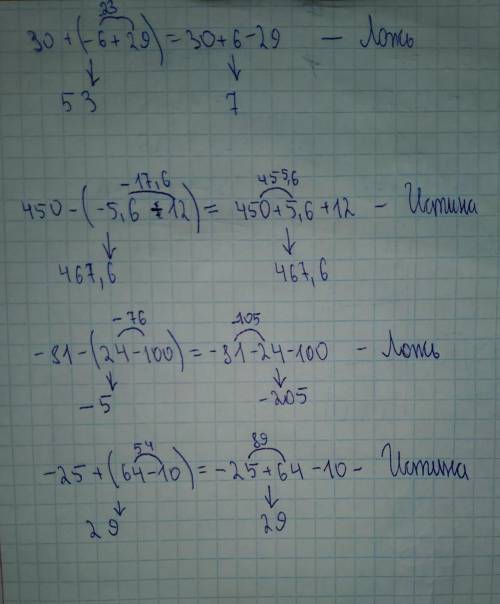 23
30 + (-6 + 29) = 30 + 6 - 29 — Ложь
53 7
-17,6 455,6
450 - (-5,6 - 12) = 450 + 5,6 + 12 - Истина
467,6 467,6
-76 -105
-81 - (24 - 100) = -81 - 24 - 100 - Ложь
-5 -205
54 89
-25 + (64 - 10) = -25 + 64 - 10 - Истина
29 29